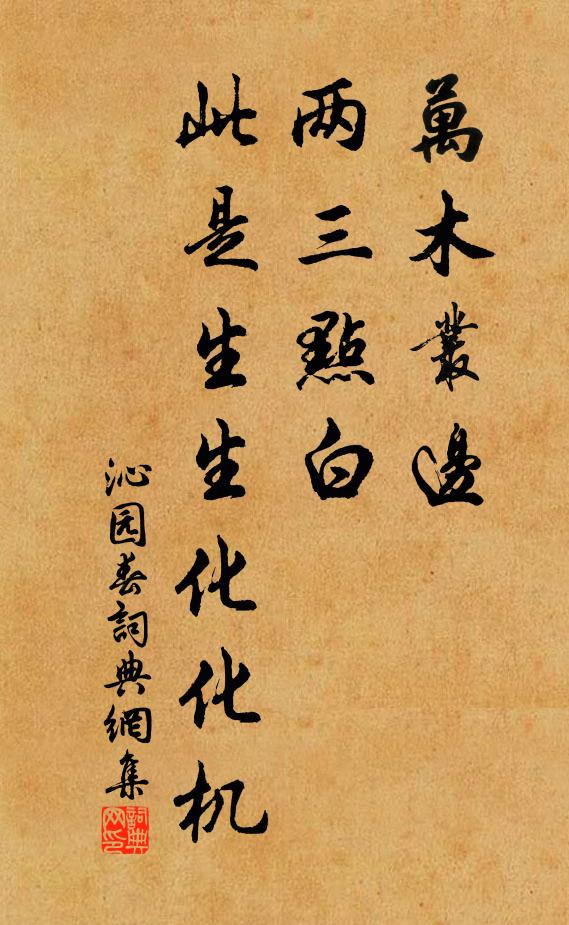 萬木叢邊
两三點白
此是生生化化机
沁园春詞典網集
詞典
网印